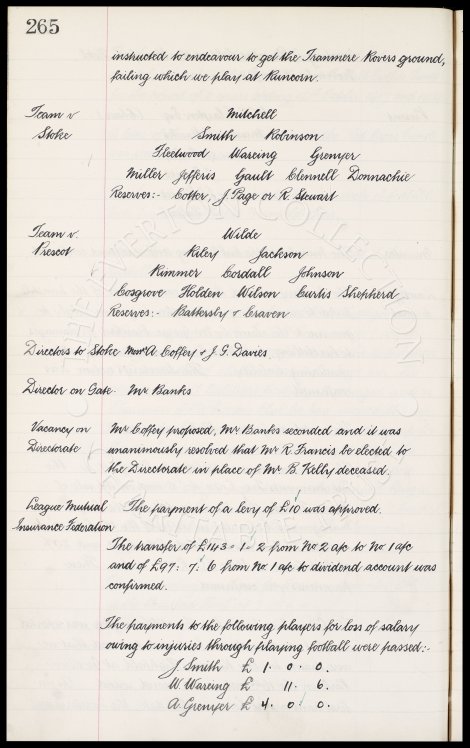 265
instructed to endeavour to get the Tranmere Rovers ground,
failing which we play at Runcorn.
Team v Mitchell
Stoke Smith Robinson
Fleetwood Wareing Grenyer
Miller Jefferis Gault Clennell Donnachie
Reserves:- Cotter, J. Page or R. Stewart
Team v. Wilde
Prescot Riley Jackson
Rimmer Cordall Johnson
Cosgrove Holden Wilson Curtis Shepherd
Reserves: Battersby & Craven
Directors to Stoke Messrs A. Coffey & J. G. Davies
Director on Gate. Mr Banks
Vacancy on Mr Coffey proposed, Mr Banks seconded and it was
Directorate unanimously resolved that Mr R. Francis be elected to
the Directorate in place of Mr B. Kelly deceased.
League Mutual The payment of a levy of £10 was approved.
Insurance Federation
The transfer of £143 - 1 - 2 from No 2 a/c to No 1 a/c
and of £97 : 7 : 6 from No 1 a/c to dividend account was
confirmed.
The payments to the following players for loss of salary
owing to injuries through playing football were passed:-
J. Smith £ 1 . 0 . 0.
W. Wareing £ 11 . 6.
A. Grenyer £ 4 . 0 . 0.
THE EVERTON COLLECTION